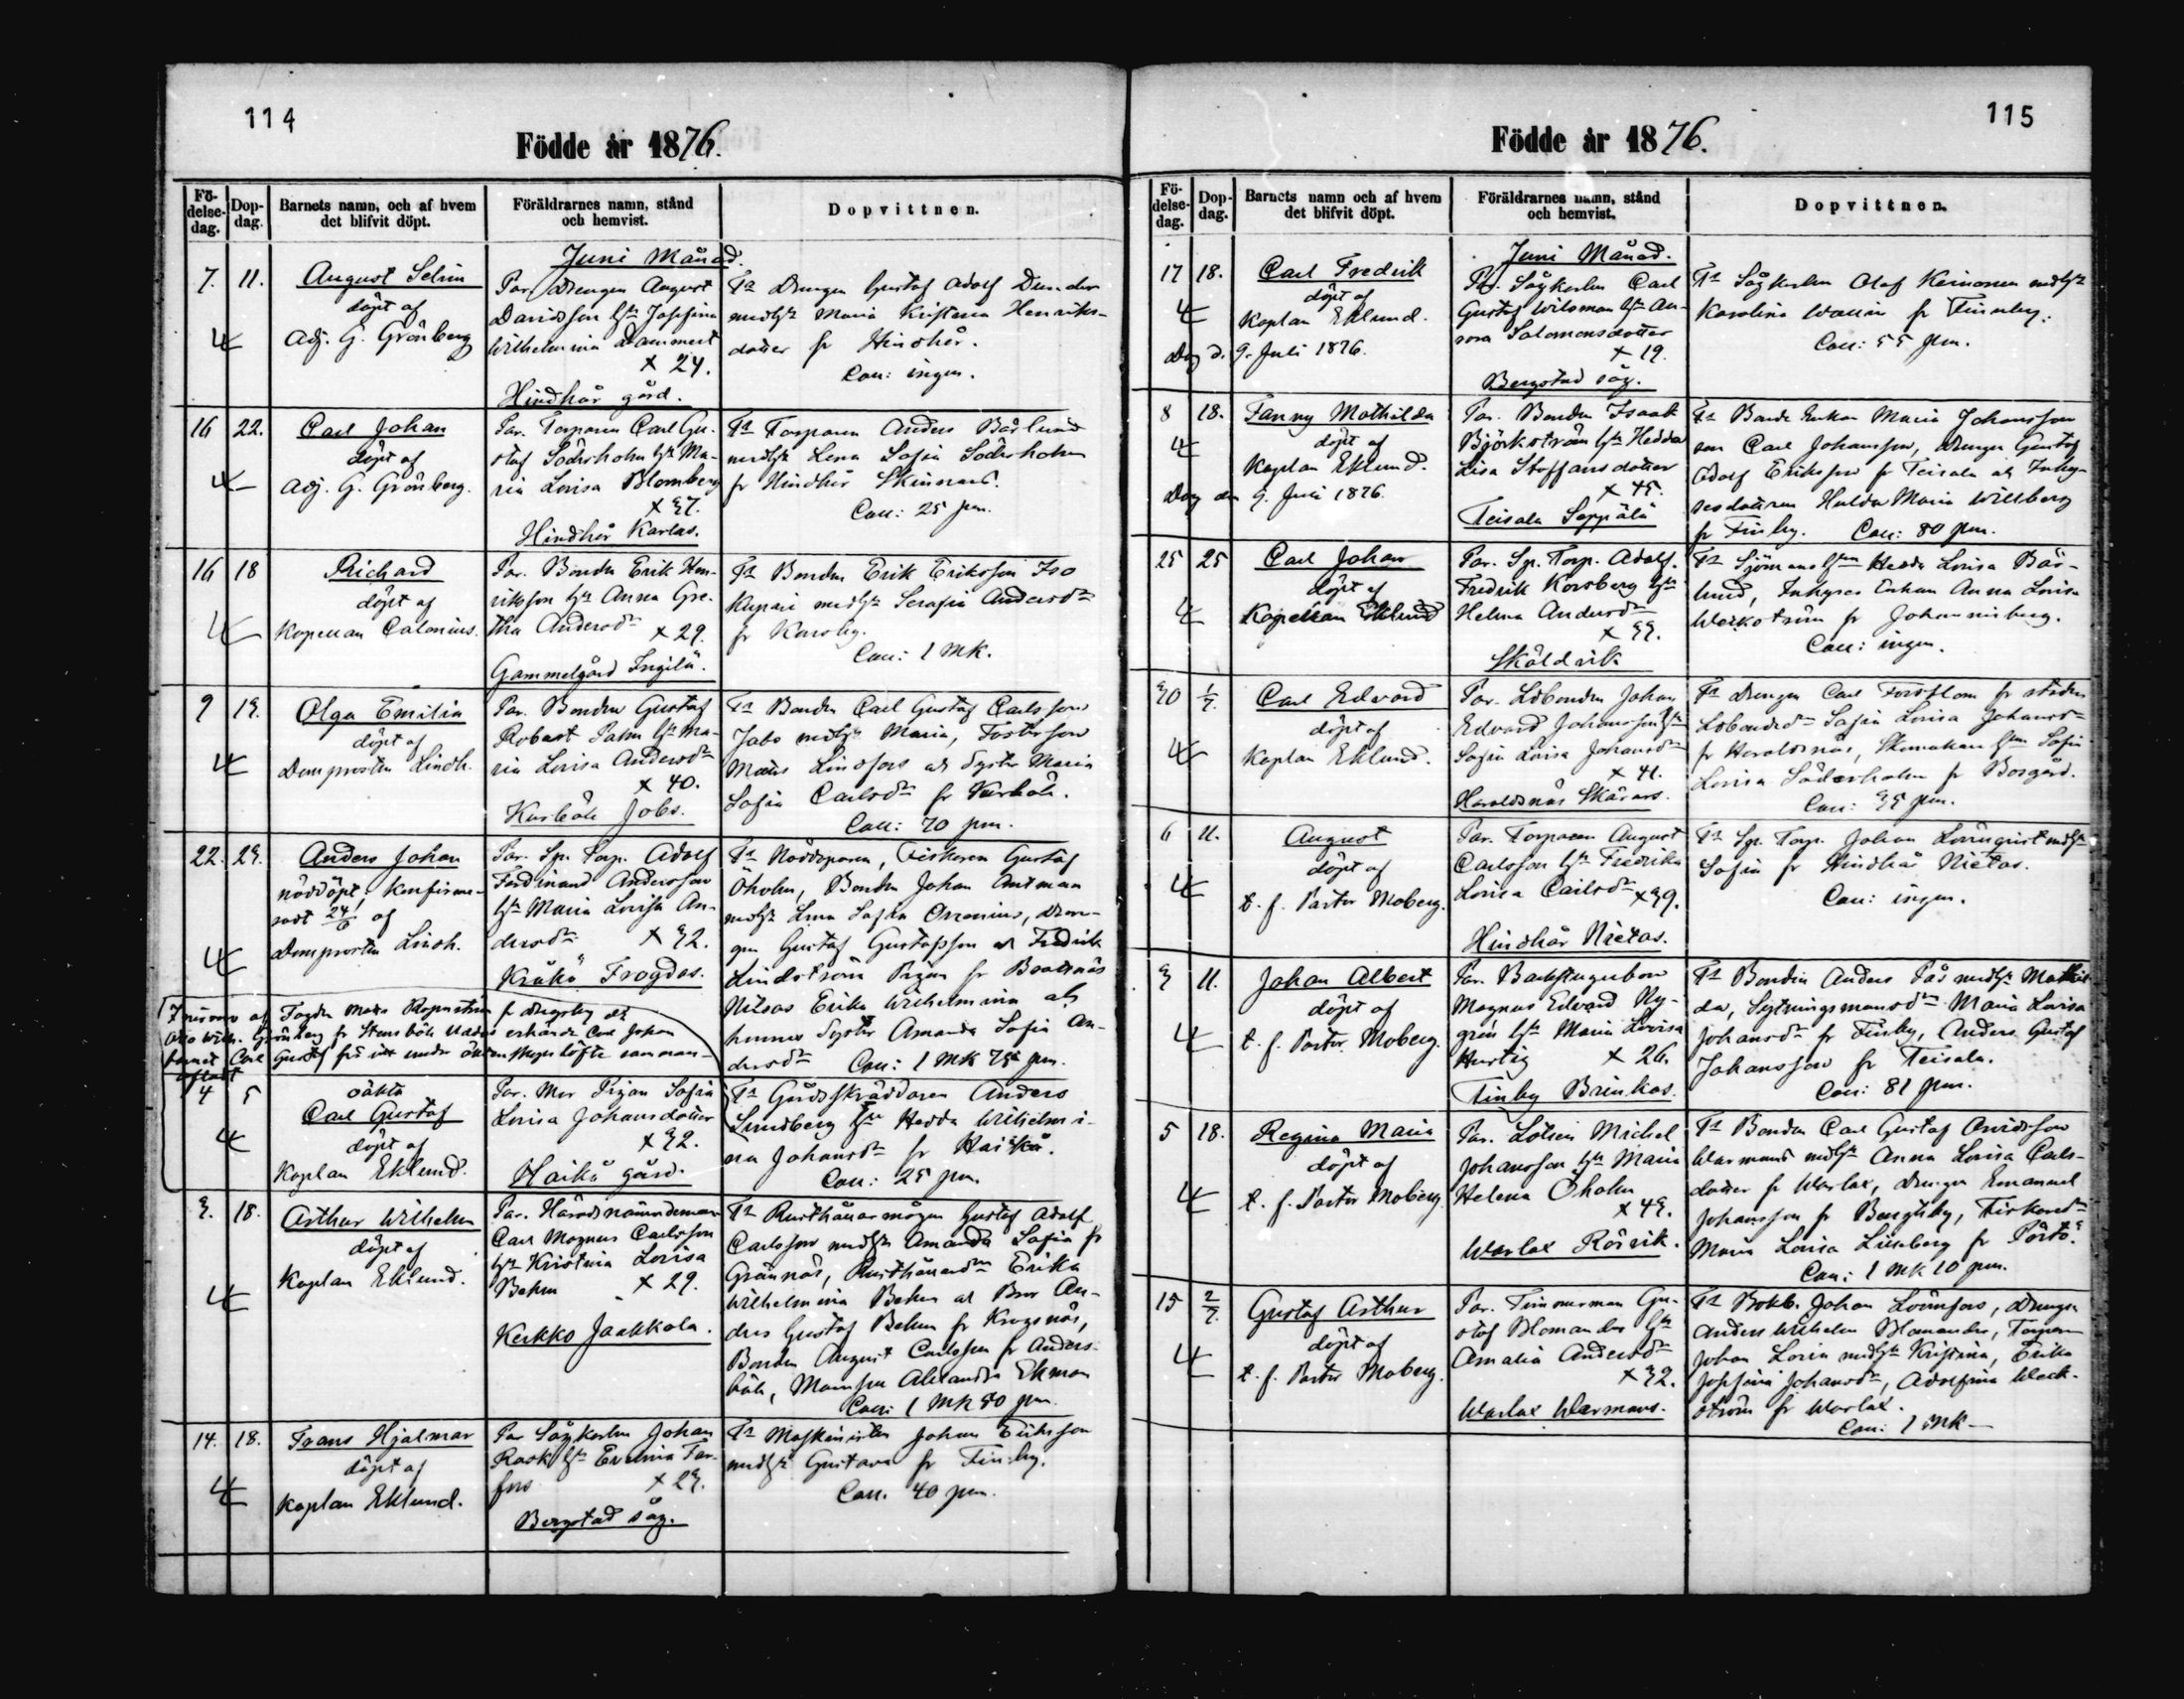 114
Födde år 1876.
Fö-
delse-
dag.
Dop-
dag.
Barnets namn, och af hvem
det blifvit döpt.
Föräldrarnes namn, stånd
och hemvist.
Dopvittnen.
Juni Månad.
7. 11.
August Selim
döpt af
Adj. G. Grönberg
Par. Drengen August
Davidsson hstr Josefina
Wilhelmina Dammert
x 24.
Hindhår gård.
Ts Drengen Gustaf Adolf Dunder
med hstr Maria Kristina Henriks-
dotter fr Hindhår.
Coll: ingen.
16 22.
Carl Johan
döpt af
Adj. G. Grönberg.
Par. Torparen Carl Gu-
staf Söderholm hstr Ma-
ria Lovisa Blomberg
x 37.
Hindhår Karlas.
Ts Torparen Anders Bärlund
med hstr Lena Sofia Söderholm
fr Hindhår Skinnars.
Coll: 25 pm.
16 18
Richard
döpt af
Kapellan Calonius.
Par. Bonden Erik Hen-
riksson hstr Anna Gre-
tha Andersdr x 29.
Gammelgård Ingilä.
Ts Bonden Erik Eriksson Iso
Kupari med hstr Serafia Andersdr
fr Karsby.
Coll: 1 mk.
9 19.
Olga Emilia
döpt af
Domprosten Lindh.
Par. Bonden Gustaf
Robert Palm hstr Ma-
ria Lovisa Andersdr
x 40.
Kurböle Jobs.
Ts Bonden Carl Gustaf Carlsson
Jabs med hstr Maria, Fosterson
Mats Lindfors och Syster Maria
Sofia Carlsdr fr Kurböle.
Coll: 70 pm.
22. 23.
Anders Johan
nöddöpt, konfirme-
radt 24/6 af
Domprosten Lindh.
Par. Sp. Torp. Adolf
Ferdinand Andersson
hstr Maria Lovisa An-
dersdr x 32.
Kråkö Frogdas.
Ts Nöddöparen, Fiskaren Gustaf
Öholm, Bonden Johan Antman
med hstr Lena Sofia, Dren-
gen Gustaf Gustafsson och Fredrik
Lindström Pigan fr
Nilsas Erika Wilhelmina och
hennes Syster Amanda Sofia An-
dersdr Coll: 1 mk 75 pm.
I närvaro af Fogden Mats fr Drägsby och
Otto Wilh. Grönberg fr Stensböle erkände Carl Johan
barnet Carl Gustaf för sitt under äktenskapslöfte samman-
afladt
4 5
oäkta
Carl Gustaf
döpt af
Kaplan Eklund.
Par. Mor Pigan Sofia
Lovisa Johansdotter
x 32.
Haikå gård.
Ts Gårdsskräddaren Anders
Sundberg hstr Hedda Wilhelmi-
na Johansdr fr Haikå.
Coll: 25 pm.
3. 18.
Arthur Wilhelm
döpt af
Kaplan Eklund.
Par. Häradsnämndeman
Carl Magnus Carlsson
hstr Kristina Lovisa
Behm x 29.
Kerkko Jaakkola.
Ts Rusthållarmågen Gustaf Adolf
Carlsson med hstr Amanda Sofia fr
Grännäs, Rusthållaredr Erika
Wilhelmina Behm och Bror An-
ders Gustaf Behm fr Krogsnäs,
Bonden August Carlsson fr Anders-
böle, Mamsell Alexandra Ekman
Coll: 1 mk 50 pm.
14. 18.
Frans Hjalmar
döpt af
Kaplan Eklund.
Par Sågkarlen Johan
Rask hstr Evelina For-
fors x 23.
Bergstad såg.
Ts Maskinisten Johan Eriksson
med hstr Gustava fr Finby.
Coll. 40 pm.
115
Födde år 1876.
Fö-
delse-
dag.
Dop-
dag.
Barnets namn och af hvem
det blifvit döpt.
Föräldrarnes namn, stånd
och hemvist.
Dopvittnen.
Juni Månad.
17 18.
Carl Fredrik
döpt af
Kaplan Eklund.
Dog d. 9. Juli 1876.
Par. Sågkarlen Carl
Gustaf Wilsman hstr An-
nora Salomonsdotter
x 19.
Bergstad såg.
Ts Sågkarlen Olof Keinonen med hstr
Karolina Wallin fr Finnby.
Coll: 55 pm.
8 18.
Fanny Mathilda
döpt af
Kaplan Eklund.
Dog den 9. Juli 1876.
Par. Bonden Isaak
Björkström hstr Hedda
Lisa Staffansdotter
x 45.
Teisala Seppälä
Ts Bonde Enkan Maria Johansson
son Carl Johansson, Drengen Gustaf
Adolf Eriksson fr Teisala och Inhy-
sesdottren Hulda Maria Willberg
fr Finby. Coll: 80 pm.
25 25
Carl Johan
döpt af
Kapellan Eklund
Par. Sp. Torp. Adolf
Fredrik Korsberg hstr
Helena Andersdr
x 33.
Sköldvik
Ts Sjömans hstrn Hedda Lovisa Bär-
lund, Inhyses Enkan Anna Lovisa
Werkström fr Johannisberg.
Coll: ingen.
30 1/7.
Carl Edvard
döpt af
Kaplan Eklund.
Par. Ldbonden Johan
Edvard Johansson hstr
Sofia Lovisa Johansdr
x 41.
Haraldsnäs Skärars.
Ts Drengen Carl Forsblom fr staden
Ldbondedr Sofia Lovisa Johansdr
fr Haraldsnäs, Skomakare hstrn Sofia
Lovisa Söderholm fr Borgård.
Coll: 35 pm.
6 11.
August
döpt af
t. f. Pastor Moberg.
Par. Torparen August
Carlsson hstr Fredrika
Lovisa Carlsdr x 39.
Hindhår Nietas.
Ts Sp. Torp. Johan Lönnqvist med hstr
Sofia fr Hindhår Nietas.
Coll: ingen.
3 11.
Johan Albert
döpt af
t. f. Pastor Moberg.
Par. Backstugubon
Magnus Edvard Ny-
gren hstr Maria Lovisa
Hurtig x 26.
Finby Brinkas.
Ts Bonden Anders Pås med hstr Mathil-
da, Sytningsmansdrn Maria Lovisa
Johansdr fr Finby, Anders Gustaf
Johansson fr Teisala.
Coll: 81 pm.
5 18.
Regina Maria
döpt af
t. f. Pastor Moberg
Par. Lotsen Michel
Johansson hstr Maria
Helena Öholm
x 43.
Warlax Rörvik.
Ts Bonden Carl Gustaf Arvidsson
Warmans med hstr Anna Lovisa Carls-
dotter fr Warlax, Drengen Emanuel
Johansson fr Bengtsby, Fiskaredr
Maria Lovisa Liljeberg fr Pörtö.
Coll: 1 mk 10 pm.
15 2/7.
Gustaf Arthur
döpt af
t. f. Pastor Moberg.
Par. Timmerman Gu-
staf Blomander hstr
Amalia Andersdr
x 32.
Warlax Warmans.
Ts Bokb. Johan Lönnfors, Drengen
Anders Wilhelm Blomander, Torparen
Johan Lorin med hstr Kristina, Erika
Josefina Johansdr, Adolfina Weck-
ström fr Warlax.
Coll: 1 mk —